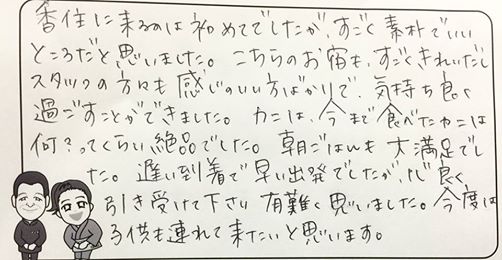 香住に来るのは初めてでしたが、すごく素朴でいい
ところだと思いました。こちらのお宿も、すごくきれいだし
スタッフの方々も感じのいい方ばかりで、気持ち良く
過ごすことができました。カニは、今まで食べたカニは
何？ってくらい絶品でした。朝ごはんも大満足でし
た。遅い到着で早い出発でしたが、心良く
引き受けて下さい有難く思いました。今度は
子供も連れて来たいと思います。